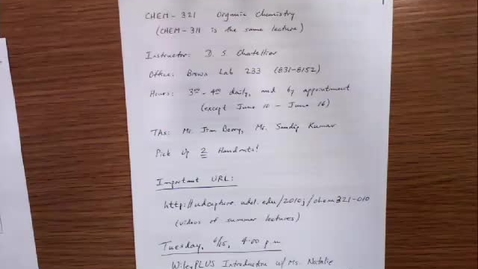 CHEM-321 Organic Chemistry
(CHEM-311 is the same lecture)
Instructor: D. S
Office: Brown Lab 233 (831-8152)
Hours: 3⁰⁰-4⁰⁰ daily, and by appointment
(except June 10 - June 16)
TAs: Mr. Jim Berry, Mr. Sandip Kumar
Pick Up 2 Handouts!
Important URL:
http://udcapture.udel.edu/2010j/chem321-010
(videos of summer lectures)
Tuesday, 6/15, 4:00 p.m
WileyPLUS Introduction w/ Ms. Natalie